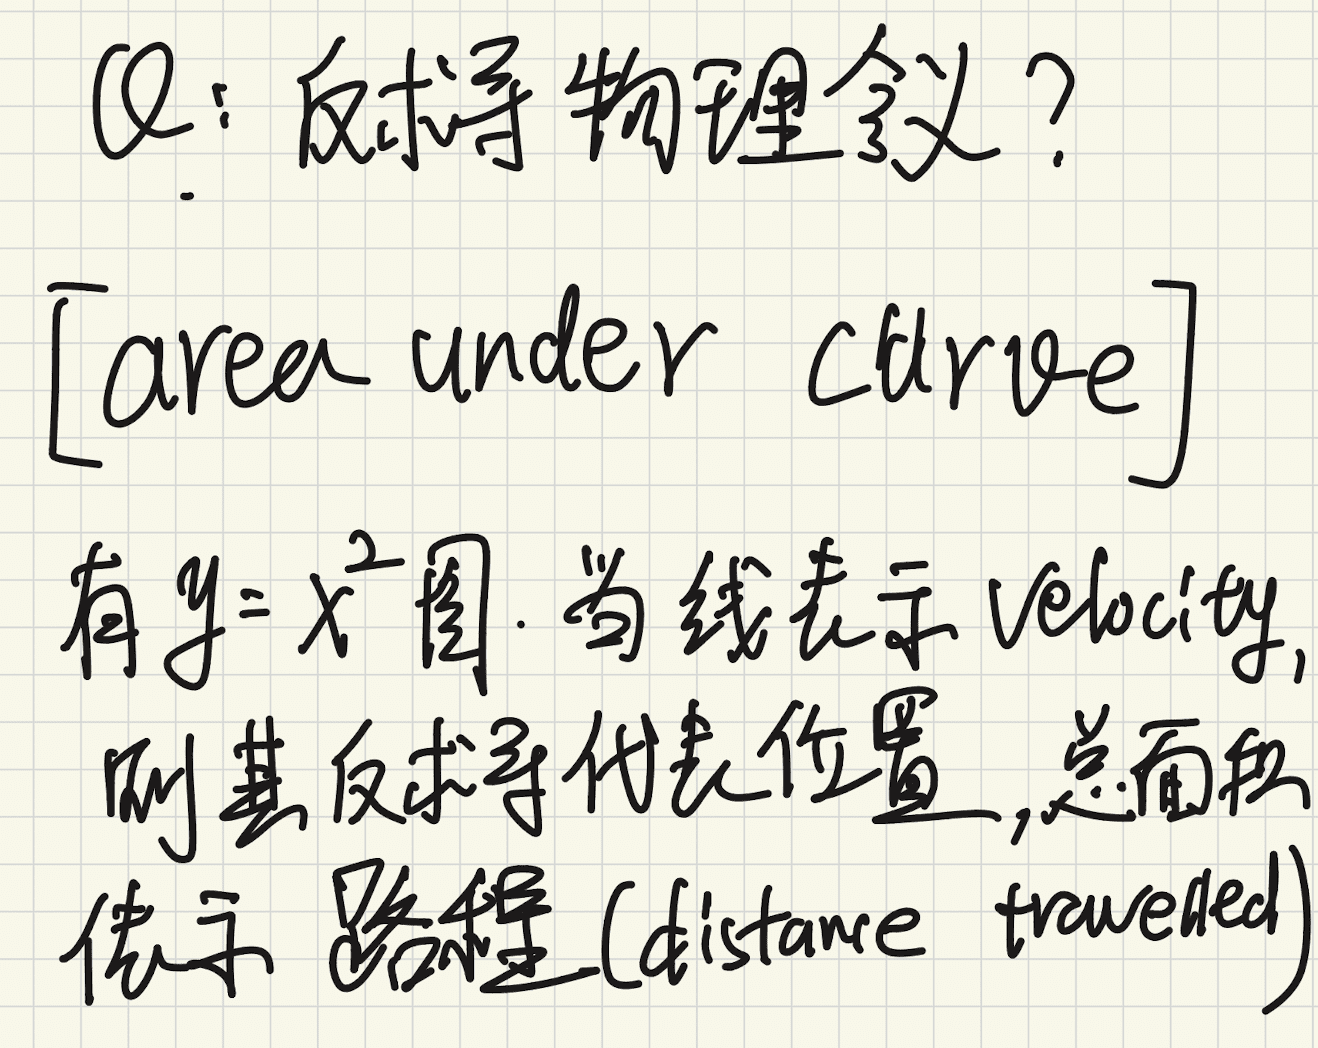 Q: 反求导物理含义?
[area under curve]
有y=x²图.当线表示velocity,
则其反求导代表位置,总面积
俵示路程(distance travelled)